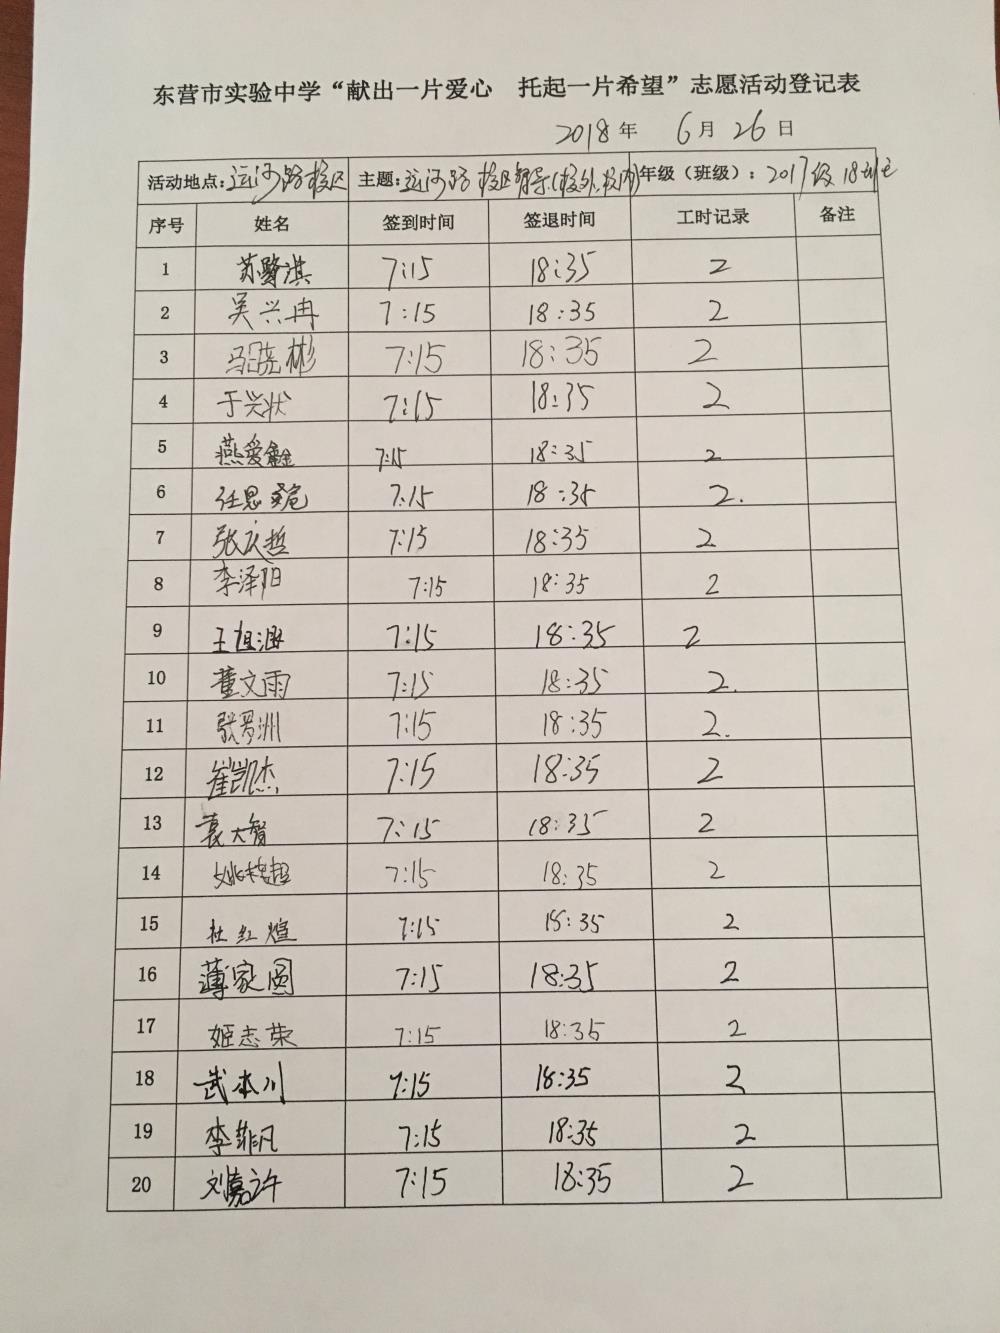 东营市实验中学“献出一片爱心 托起一片希望”志愿活动登记表
2018年 6月26日
活动地点:运河路校区 主题:运河路校区督导(校外、校内) 年级（班级）:2017级18班
序号 姓名 签到时间 签退时间 工时记录 备注
1 苏 淇 7:15 18:35 2
2 吴兴冉 7:15 18:35 2
3 马 彬 7:15 18:35 2
4 于兴状 7:15 18:35 2
5 燕爱鑫 7:15 18:35 2
6 任思 7:15 18:35 2.
7 张庆哲 7:15 18:35 2
8 李泽阳 7:15 18:35 2
9 王 涵 7:15 18:35 2
10 董文雨 7:15 18:35 2.
11 张梦洲 7:15 18:35 2.
12 崔凯杰 7:15 18:35 2
13 袁大智 7:15 18:35 2
14 姚 超 7:15 18:35 2
15 杜红煊 7:15 18:35 2
16 薄家圆 7:15 18:35 2
17 姬志荣 7:15 18:35 2
18 武本川 7:15 18:35 2
19 李菲凡 7:15 18:35 2
20 刘嘉许 7:15 18:35 2